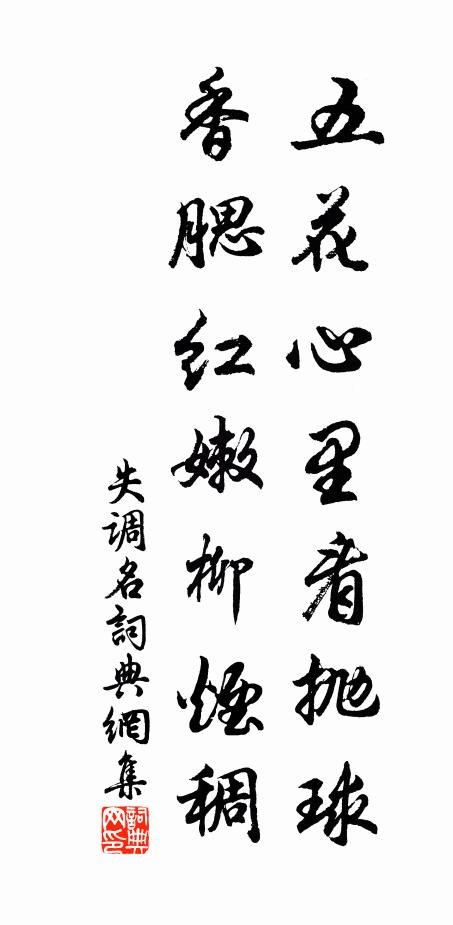 五花心里看抛球
香腮红嫩柳烟稠
失调名詞典網集
詞典网印